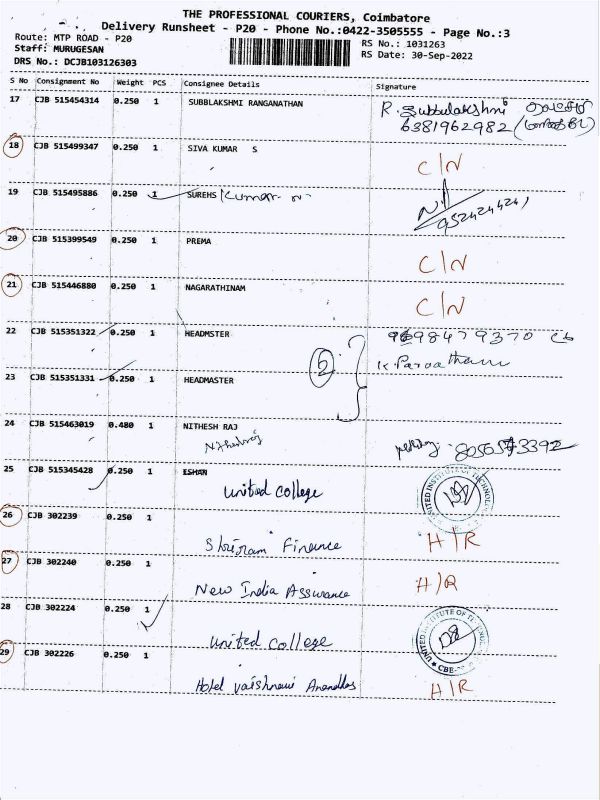 THE PROFESSIONAL COURIERS, Coimbatore
Delivery Runsheet - P20 - Phone No.:0422-3505555 - Page No.:3
Route: MTP ROAD - P20
RS No.: 1031263
Staff: MURUGESAN
RS Date: 30-Sep-2022
DRS No.: DCJB103126303
S No Consignment No Weight PCS Consignee Details Signature
17 CJB 515454314 0.250 1 SUBBLAKSHMI RANGANATHAN R. Subbulakshmi
6381962982
18 CJB 515499347 0.250 1 SIVA KUMAR S
C/N
19 CJB 515495886 0.250 1 SUREHS Kumar
20 CJB 515399549 0.250 1 PREMA
C/N
21 CJB 515446880 0.250 1 NAGARATHINAM
C/N
22 CJB 515351322 0.250 1 HEADMSTER 9698479370
2
23 CJB 515351331 0.250 1 HEADMASTER
24 CJB 515463019 0.480 1 NITHESH RAJ
25 CJB 515345428 0.250 1 ESHAN
United College
26 CJB 302239 0.250 1
Shriram Finance H/R
27 CJB 302240 0.250 1
New India Assurance H/R
28 CJB 302224 0.250 1
United College
29 CJB 302226 0.250 1
Hotel Vaishnavi H/R